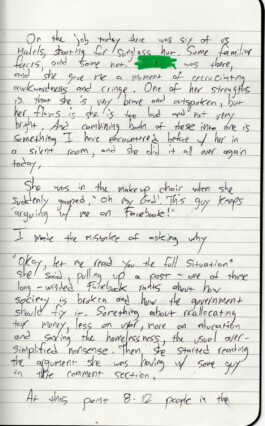 On the job today there was six of us
models, shooting for Sunglass hut. Some familiar
faces, and some not. was there,
and she gave me a moment of excruciating
awkwardness and cringe. One of her strengths
is that she is very brave and outspoken, but
her flaws is she is too loud and not very
bright. And combining both of these into one is
something I have encountered before w/ her in
a silent room, and she did it all over again
today.
She was in the makeup chair when she
suddenly gasped, "oh my God. This guy keeps
arguing w/ me on Facebook!"
I made the mistake of asking why
"Okay, let me read you the full situation"
she said, pulling up a post - one of three
long-winded Facebook rants about how
society is broken and how the government
should fix it. Something about reallocating
tax money, less on war, more on education
and saving the homelessness, the usual over-
simplified nonsense. Then she started reading
the argument she was having w/ some guy
in the comment section.
At this point 8-12 people in the